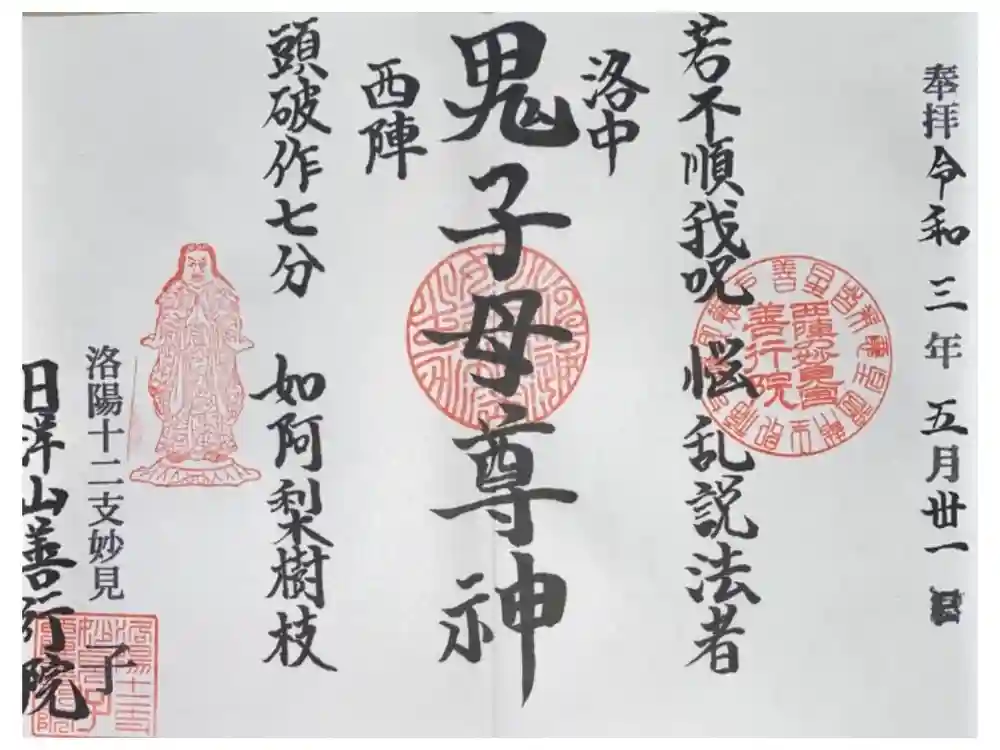 奉拝 令和 三年 五月 丗一日
若不順我呪 悩乱説法者
洛中
鬼子母尊神
西陣
頭破作七分 如阿梨樹枝
洛陽十二支妙見 子
日洋山善行院
西陣の妙見宮
善行院